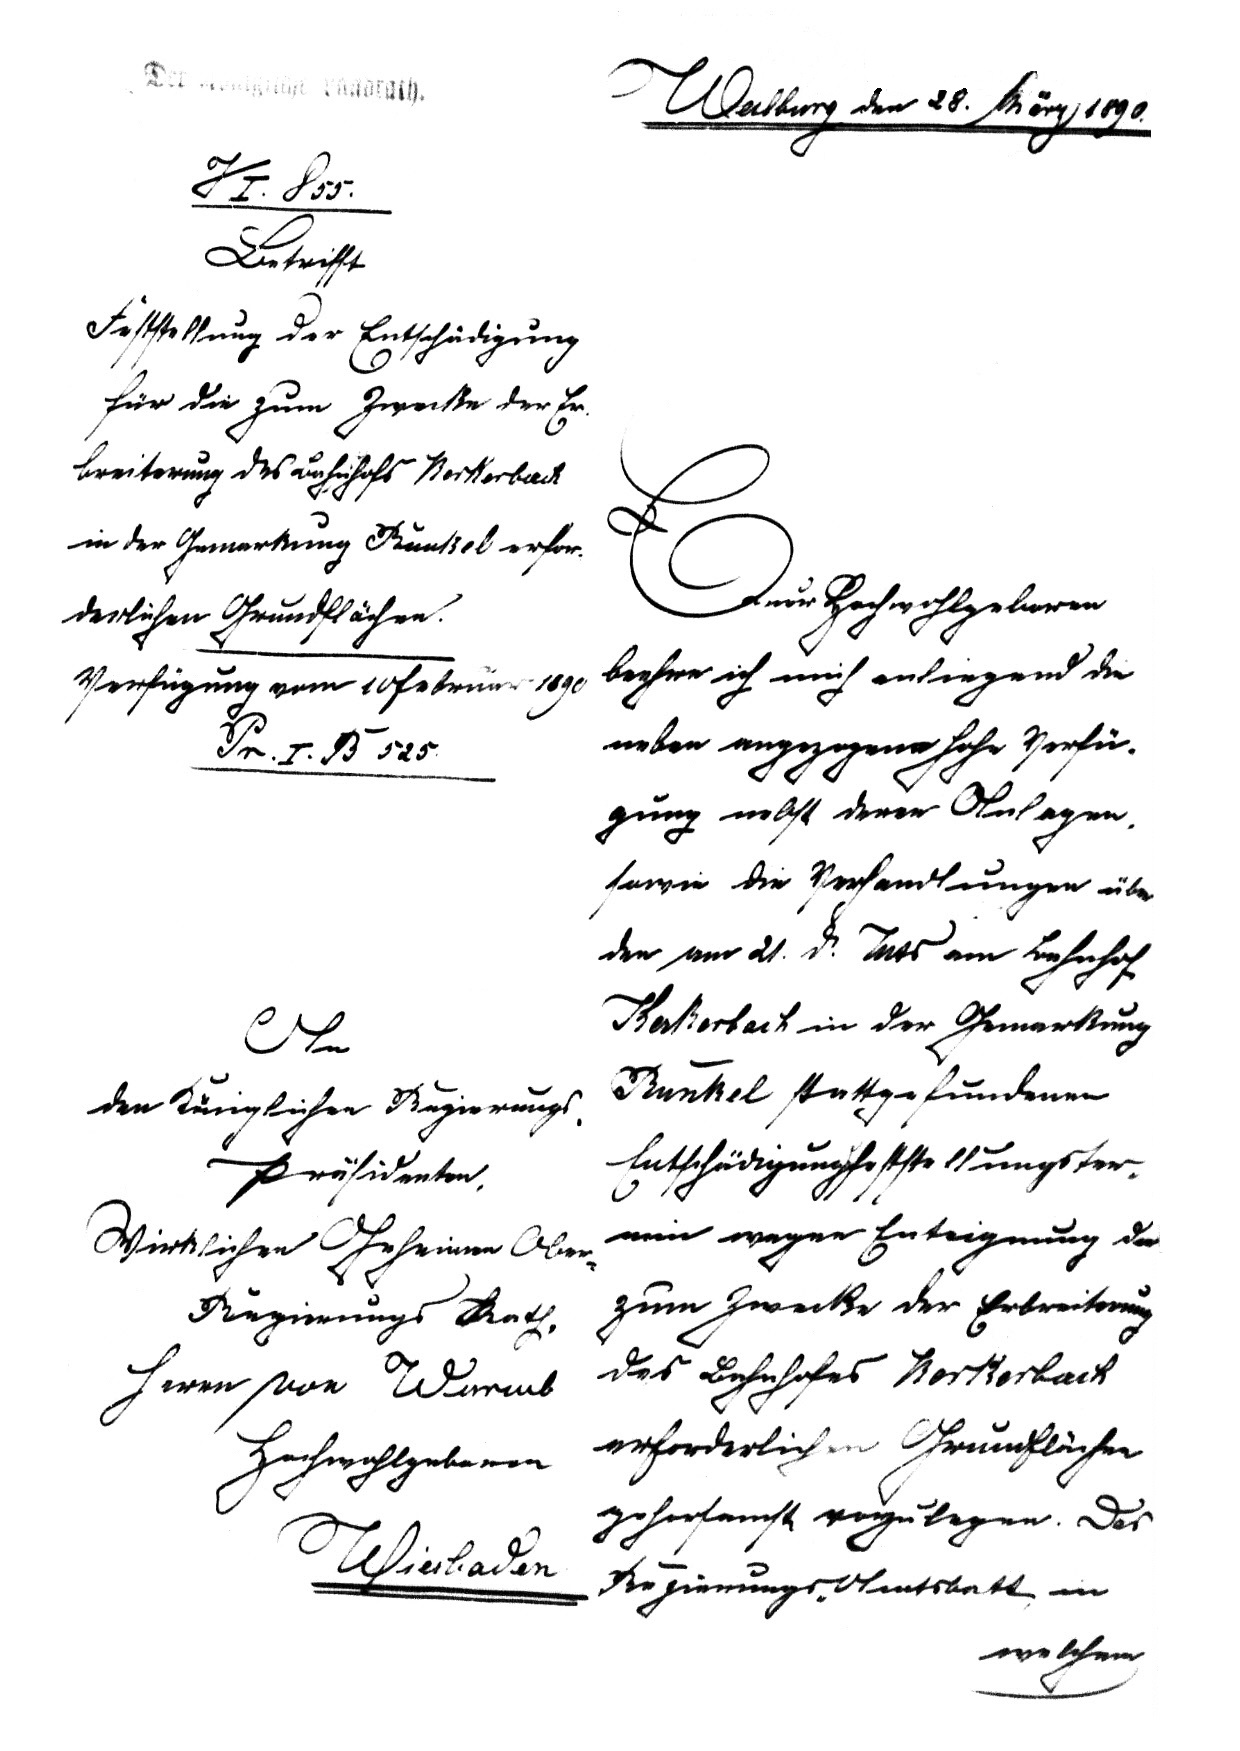 Der Königliche Landrath.
Weilburg den 28. März 1890.
J/I. 855.
Betrifft
Feststellung der Entschädigung
für die zum Zwecke der Er-
breiterung des Bahnhofs Kerkerbach
in der Gemarkung Runkel erfor-
derlichen Grundflächen.
Verfügung vom 10 Februar 1890
Pr. I. B 525.
An
den Königlichen Regierungs-
Präsidenten,
Wirklichen Geheimen Ober-
Regierungs Rath,
Herrn von Wurmb
Hochwohlgeboren
Wiesbaden
Euer Hochwohlgeboren
beehre ich mich anliegend die
neben angezogene hohe Verfü-
gung nebst deren Anlagen,
sowie die Verhandlungen über
den am 21. d. Mts am Bahnhof
Kerkerbach in der Gemarkung
Runkel stattgefundenen
Entschädigungsfeststellungster-
min wegen Enteignung der
zum Zwecke der Erbreiterung
des Bahnhofes Kerkerbach
erforderlichen Grundflächen
gehorsamst vorzulegen. Das
Regierungs-Amtsbatt, in
welchem